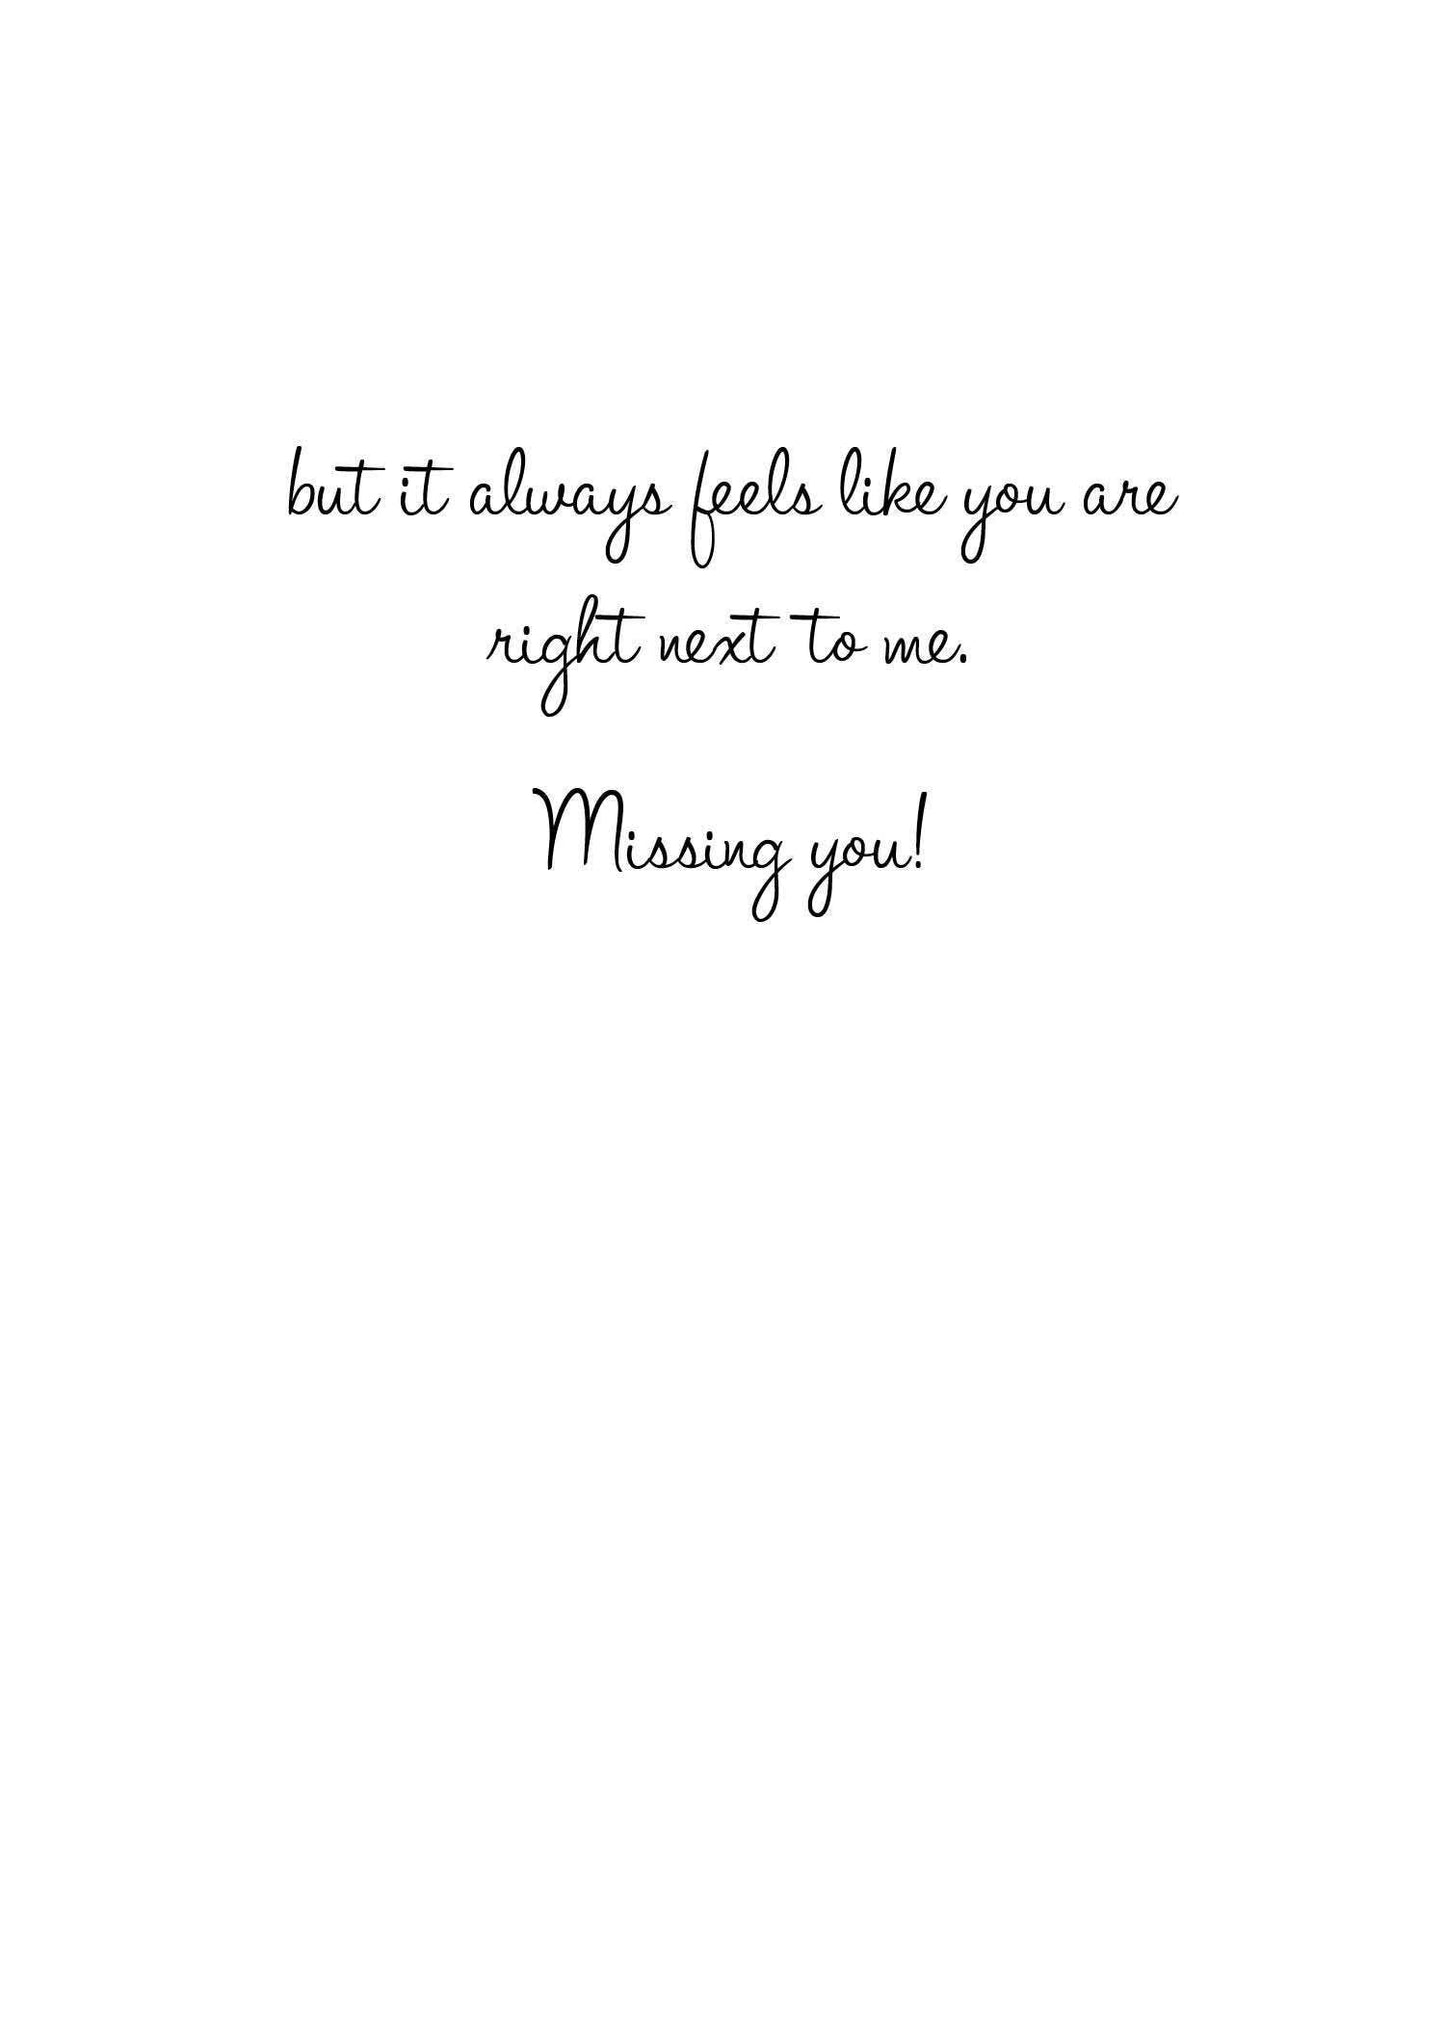 but it always feels like you are
right next to me.
Missing you!